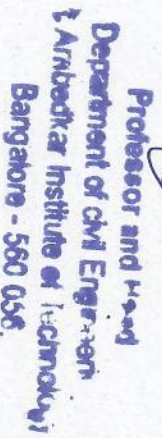 Professor and Head
Department of Civil Engineeri
Ambedkar Institute of Technology
Bangalore - 560 056.